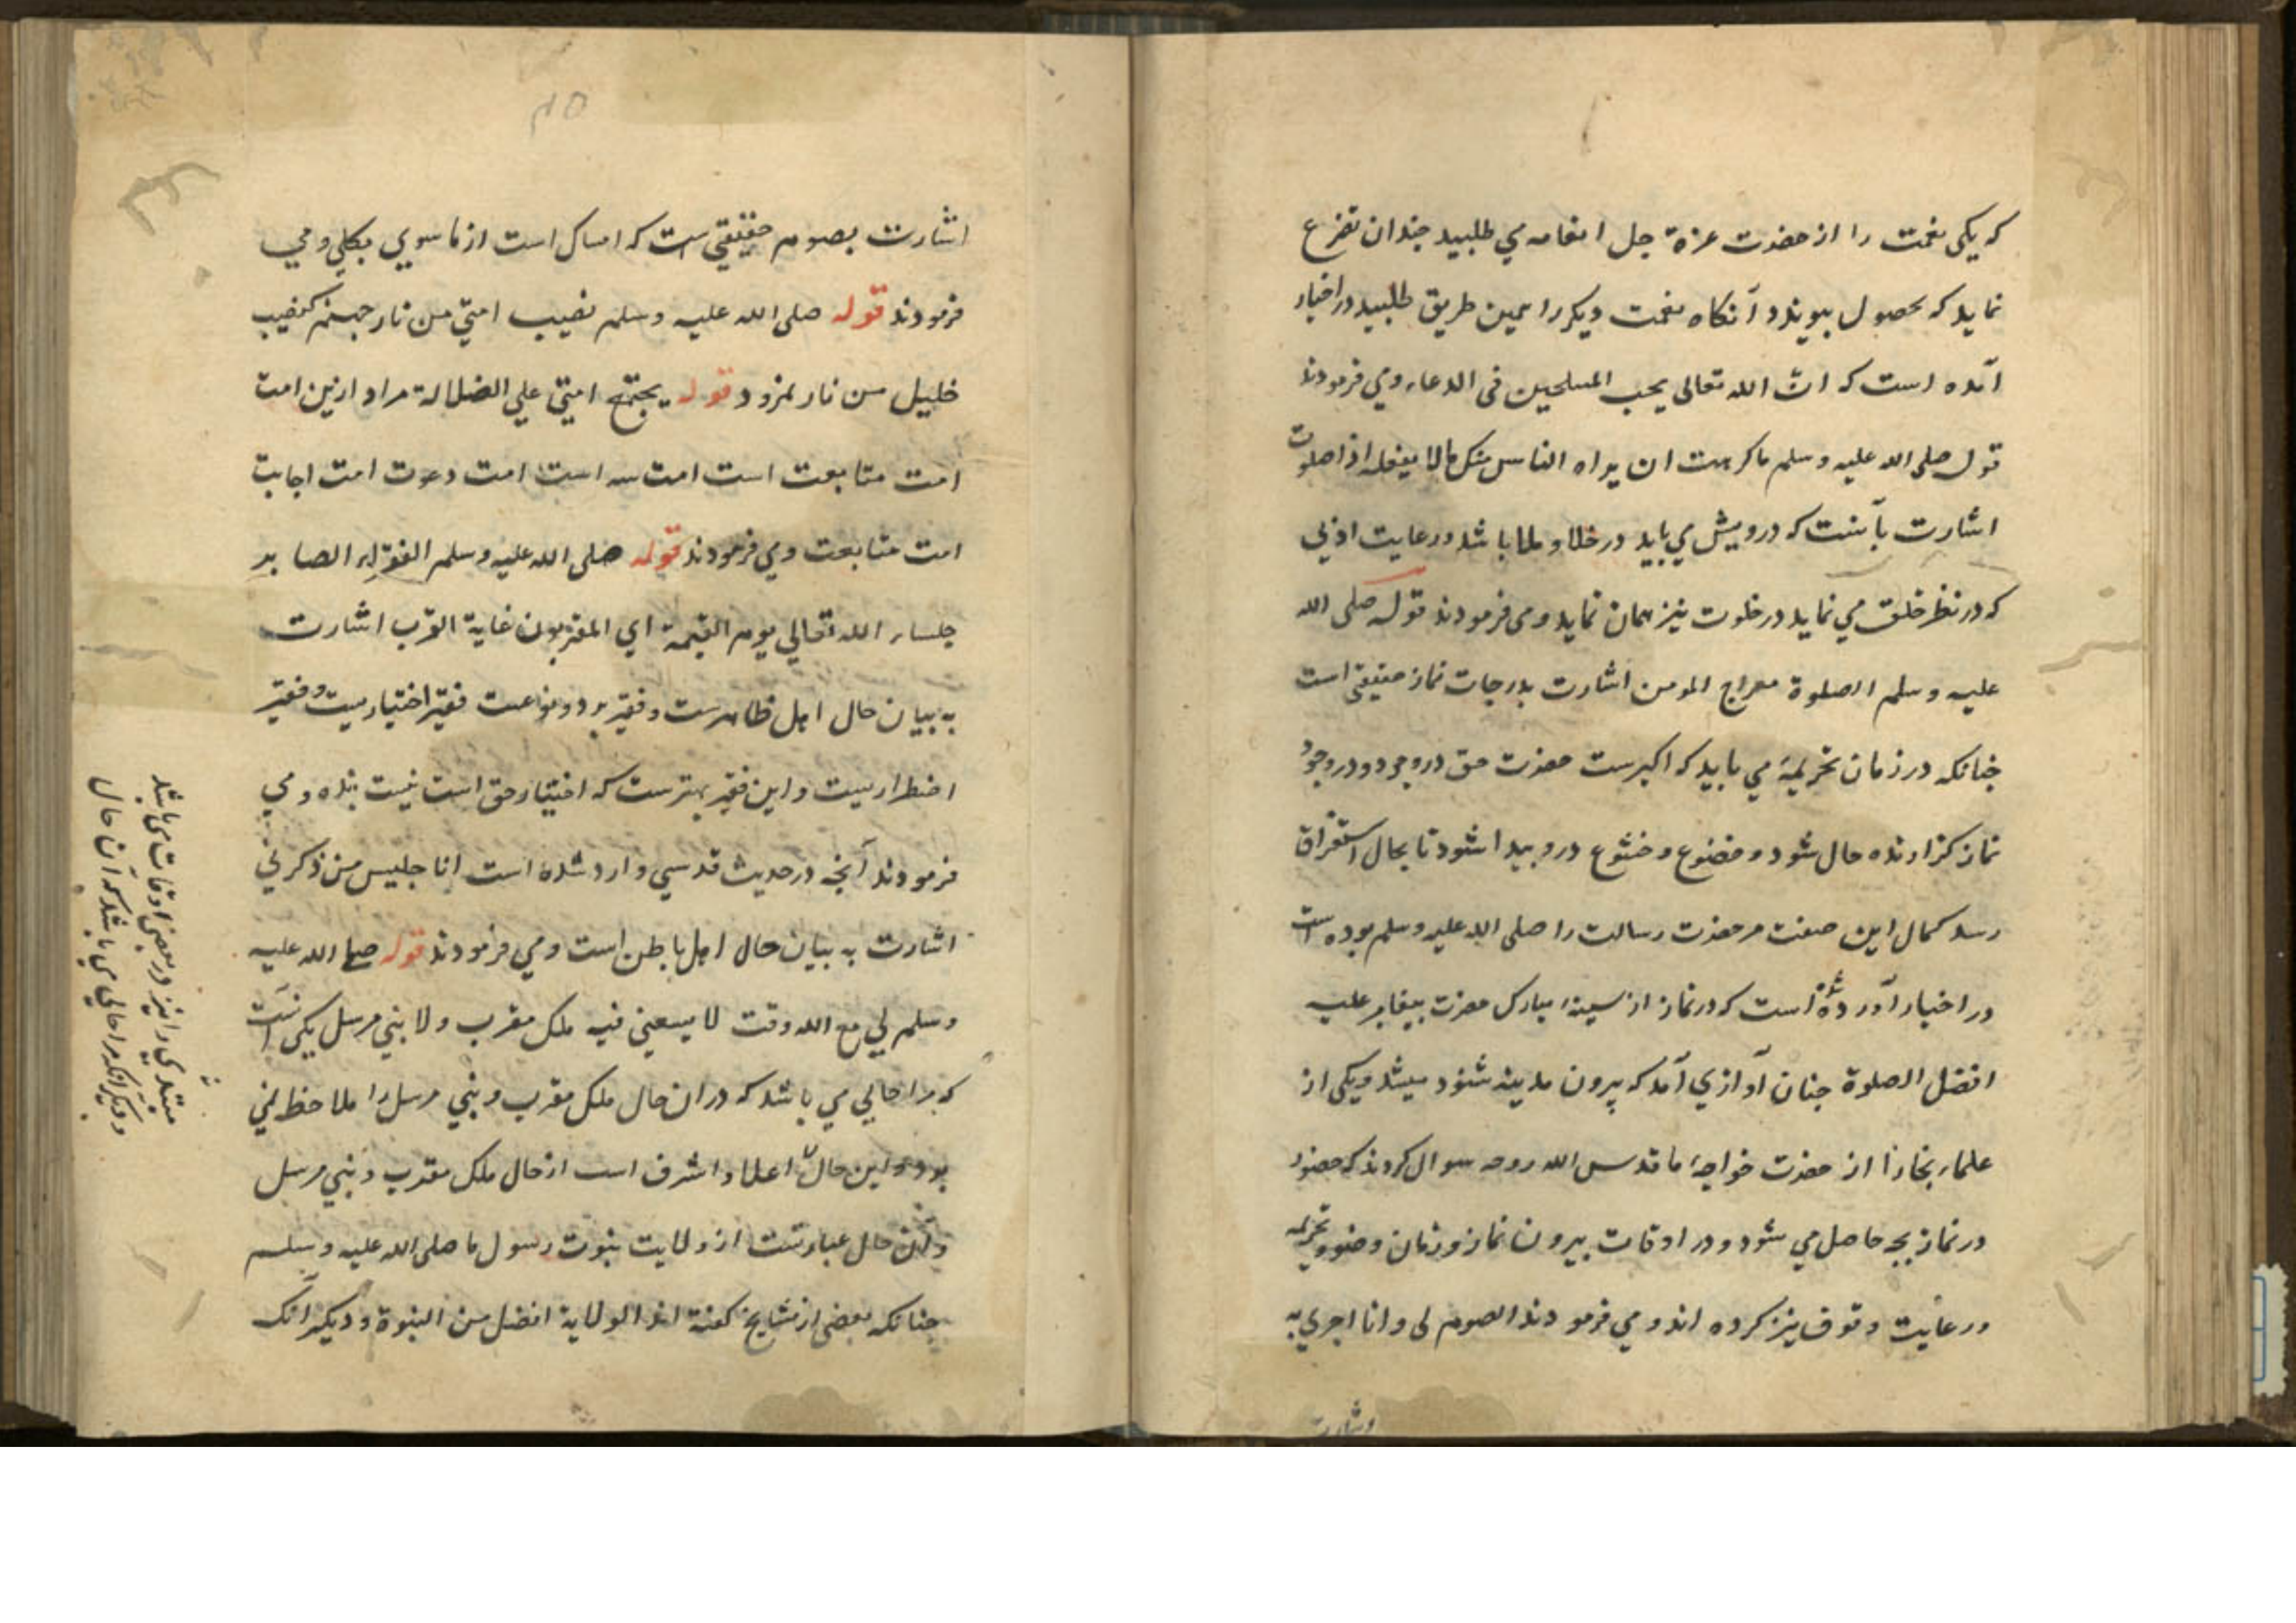 که یکی نعمت را از حضرت عزة جل انعامه می طلبید چندان تضرع
نماید که بحصول پیوندد آنکاه نعمت دیکر را همین طریق طلبید در اخبار
آمده است که ان الله تعالی یحب الملحین فی الدعاء و می فرمودند
قوله صلی الله علیه و سلم ما کرهت ان یراه الناس منک فلا یفعله اذا خلوت
اشارت بآنست که درویش می باید در خلا و ملا باشد و رعایت ادبی
که در نظر خلق می نماید در خلوت نیز همان نماید و می فرمودند قوله صلی الله
علیه و سلم الصلوة معراج المومن اشارت بدرجات نماز حقیقی است
چنانکه در زمان تحریمه می باید که اکبریت حضرت حق در وجود در وجود
نماز کزارنده حال شود و خضوع و خشوع درو پیدا شود تا بحال استغراق
رسد کمال این صفت مر حضرت رسالت را صلی الله علیه و سلم بوده است
در اخبار آورده شده است که در نماز از سینهٔ مبارک حضرت پیغامبر علیه
افضل الصلوة چنان آوازی آمد که بیرون مدینه شنود میشد و یکی از
علماء بخارا از حضرت خواجهٔ ما قدس الله روحه سوال کردند که حضور
در نماز بچه حاصل می شود و در اوقات بیرون نماز و زمان وضو و تحریمه
و رعایت وقوف نیز کرده اند و می فرمودند الصوم لی و انا اجری به
اشارت
اشارت بصوم حقیقی است که امساک است از ما سوی بکلی و می
فرمودند قوله صلی الله علیه و سلم نصیب امتی من نار جهنم کنصیب
خلیل من نار نمرود و قوله یجتمع امتی علی الضلالة مراد ازین امت
امت متابعت است امت سه است امت دعوت امت اجابت
امت متابعت و می فرمودند قوله صلی الله علیه و سلم الفقراء الصابر
جلساء الله تعالی یوم القیمة ای المقربون غایة القرب اشارت
به بیان حال اهل ظاهرست و فقیر بر دو نوعست فقیر اختیاریست و فقیر
اضطراریست و این فقیر بهترست که اختیار حق است نیست بنده و می
فرمودند آنچه در حدیث قدسی وارد شده است انا جلیس من ذکرنی
اشارت به بیان حال اهل باطن است و می فرمودند قوله صلی الله علیه
وسلم لی مع الله وقت لا یسعنی فیه ملک مقرب ولا نبی مرسل یکی آنست
که مرا حالی می باشد که در آن حال ملک مقرب و نبی مرسل را ملاحظه نمی
بود و این حال اعلا و اشرف است از حال ملک مقرب و نبی مرسل
و این حال عبارتست از ولایت نبوت رسول ما صلی الله علیه و سلم
چنانکه بعضی از مشایخ کفته اند الولایة افضل من النبوة و دیکر آنک
مبتدی را نیز در بعضی اوقات می باشد
و دیکر آنکه مرا حالی می باشد که آن حال